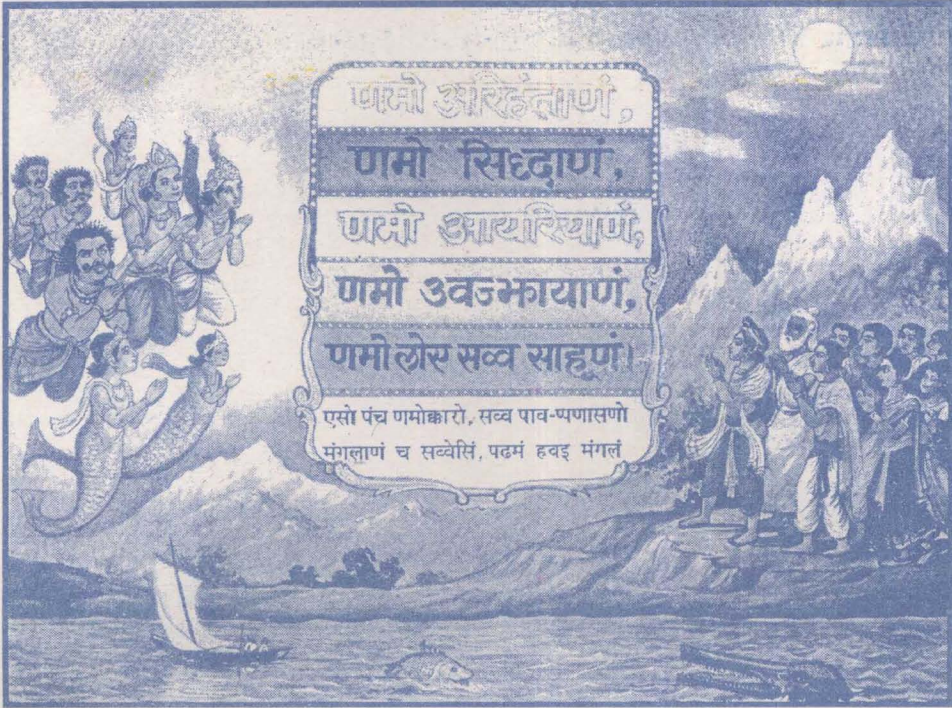 णमो अरिहंताणं,
णमो सिध्दाणं,
णमो आयरियाणं,
णमो उवज्झायाणं,
णमो लोए सव्व साहूणं।
एसो पंच णमोक्कारो, सव्व पाव-प्पणासणो
मंगलाणं च सव्वेसिं, पढमं हवइ मंगलं